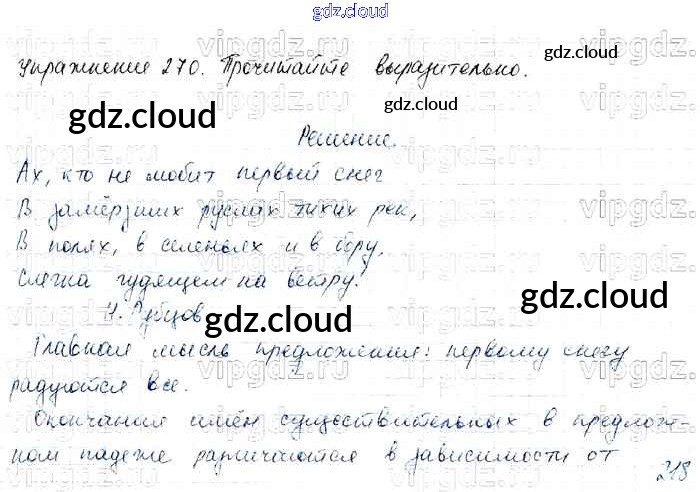 gdz.cloud
Упражнение 270. Прочитайте выразительно.
gdz.cloud
gdz.cloud
gdz.cloud
Решение.
Ах, кто не любит первый снег
В замёрзших руслах тихих рек,
В полях, в селеньях и в бору,
Слегка гудящем на ветру!
Н. Рубцов
gdz.cloud
gdz.cloud
Главная мысль предложения: первому снегу
радуются все.
Окончания имён существительных в предлож-
ном падеже различаются в зависимости от
gdz.cloud
218
vipgdz.ru